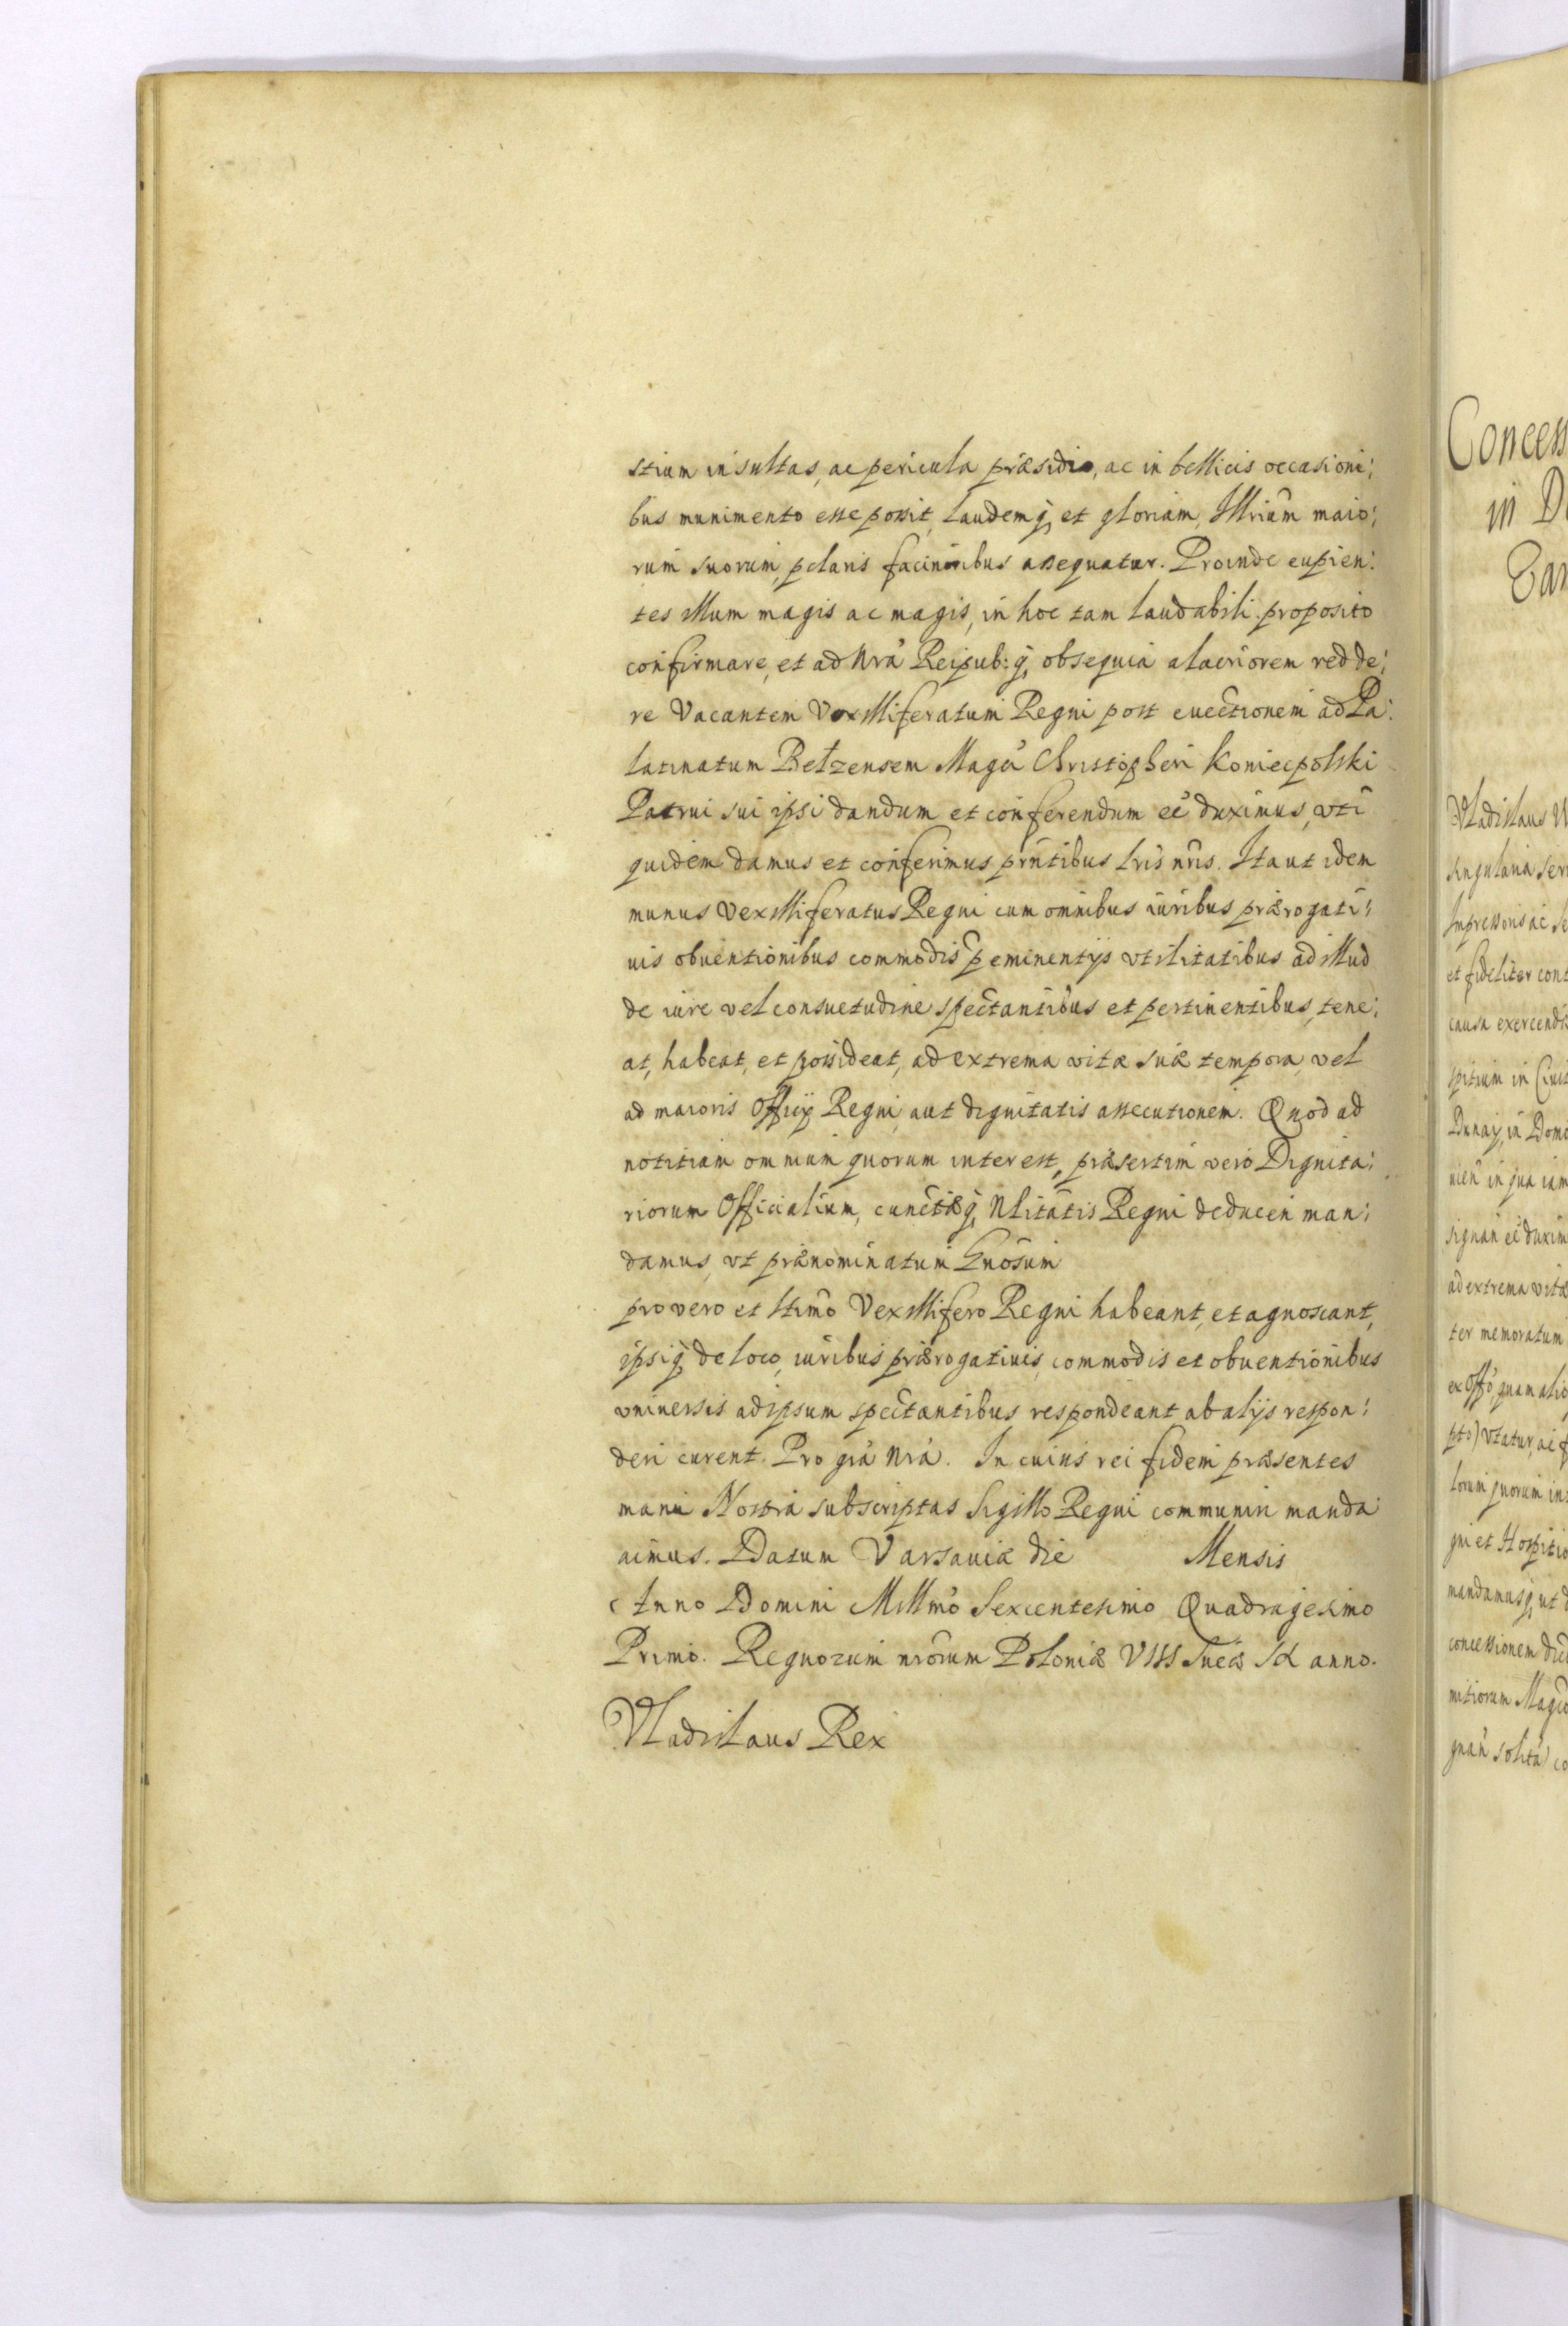 stium insultas, ac pericula præsidio, ac in bellicis occasioni:
bus munimento esse possit, laudemq́, et gloriam, Illriũm maio:
rum suorum, pclaris facinoribus assequatur. Proinde cupien:
tes illum magis ac magis, in hoc tam laudabili proposito
confirmare, et ad Nrã Reipub: q́, obsequia alacriorem redde:
re Vacantem Vexilliferatum Regni post euectionem ad Pa:
latinatum Betzensem Magci Christopheri Koniecpolski
Patrui sui ipsi dandum et conferendum eé duximus, vti
quidem damus et conferimus prñtibus lris nris. Ita ut idem
munus Vexilliferatus Regni cum omnibus iuribus prærogati:
uis obuentionibus commodis p̃eminentijs vtilitatibus ad illud
de iure vel consuetudine spectantibus et pertinentibus, tene:
at, habeat, et possideat, ad extrema vitæ suæ tempora, vel
ad maioris Officij Regni, aut dignitatis assecutionem. Quod ad
notitiam omnium quorum interest, præsertim vero Dignita:
riorum Officialium, cunctæq́, Nlitatis Regni deduceri man:
damus, vt prænominatum Gnõsum
pro vero et ltimo Vexillifero Regni habeant, et agnoscant,
ipsiq́ de loco, iuribus prærogatiuis, commodis et obuentionibus
vniuersis ad ipsum spectantibus respondeant ab alijs respon:
deri curent. Pro grã nrã. In cuius rei fidem præsentes
manu Nostra subscriptas Sigillo Regni communiri manda
uimus. Datum Varsauiæ die Mensis
Anno Domini Millmo Sexcentesimo Quadragesimo
Primo. Regnorum nrorum Poloniæ VIII Sueciæ IX anno.
Vladislaus Rex
Concess
in D
Vladislaus
singularia
Impressoris ac
et fideliter cont
causa exercendi
spitium in
Dunaij, in Domo
in qua iam
signañ eé duxim
ad extrema vitæ
ter memoratum
ex Offõ, quam alio
pto) vtatur, ac f
lorum quorum in
gni et Hospitio
mandamusq́, ut d
concessionem dic
mitiorum Magcõ
gnañ solita co